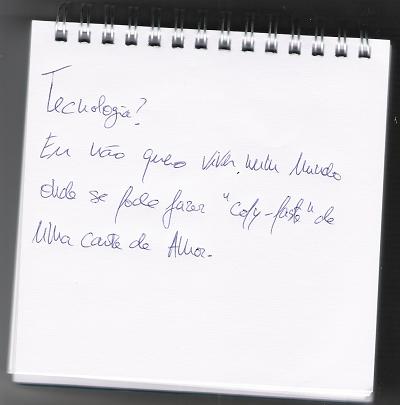 Tecnologia?
Eu não quero viver num Mundo
onde se pode fazer "copy-paste" de
uma carta de Amor.